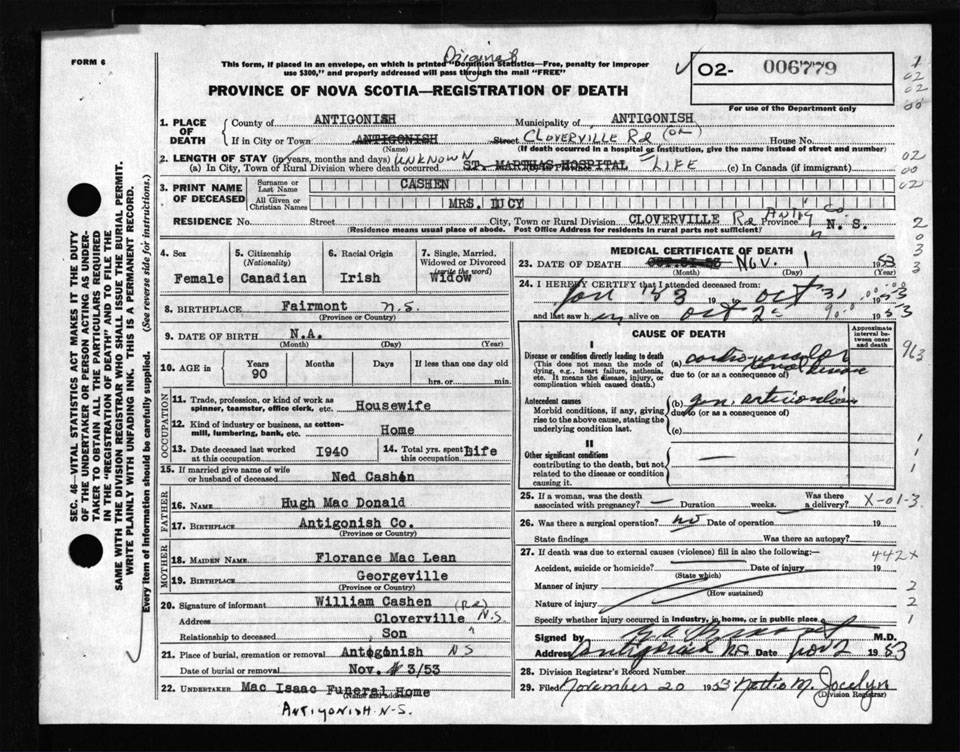 FORM 6
Original
This form, if placed in an envelope, on which is printed "Dominion Statistics—Free, penalty for improper
use $300," and properly addressed will pass through the mail "FREE"
✓ O2- 006779
For use of the Department only
PROVINCE OF NOVA SCOTIA—REGISTRATION OF DEATH
1. PLACE OF DEATH { County of ANTIGONISH Municipality of ANTIGONISH
If in City or Town ANTIGONISH Street CLOVERVILLE Rd (OR) House No.
(Name) (If death occurred in a hospital or institution, give the name instead of street and number)
2. LENGTH OF STAY (in years, months and days) UNKNOWN
(a) In City, Town or Rural Division where death occurred ST. MARTHAS HOSPITAL (b) In Province LIFE (c) In Canada (if immigrant)
3. PRINT NAME OF DECEASED { Surname or Last Name CASHEN
All Given or Christian Names MRS. LUCY
RESIDENCE No. Street City, Town or Rural Division CLOVERVILLE Rd Antig Co. Province N. S.
(Residence means usual place of abode. Post Office Address for residents in rural parts not sufficient)
4. Sex Female
5. Citizenship (Nationality) Canadian
6. Racial Origin Irish
7. Single, Married, Widowed or Divorced (write the word) Widow
8. BIRTHPLACE Fairmont N.S.
(Province or Country)
9. DATE OF BIRTH N.A.
(Month) (Day) (Year)
10. AGE in Years 90 Months Days If less than one day old hrs. or min.
OCCUPATION
11. Trade, profession, or kind of work as spinner, teamster, office clerk, etc. Housewife
12. Kind of industry or business, as cotton-mill, lumbering, bank, etc. Home
13. Date deceased last worked at this occupation I940 14. Total yrs. spent in this occupation Life
15. If married give name of wife or husband of deceased Ned Cashen
FATHER
16. NAME Hugh Mac Donald
17. BIRTHPLACE Antigonish Co.
(Province or Country)
MOTHER
18. MAIDEN NAME Florance Mac Lean
19. BIRTHPLACE Georgeville
(Province or Country)
20. Signature of informant William Cashen
Address Cloverville (Rd) N.S.
Relationship to deceased Son
21. Place of burial, cremation or removal Antigonish NS
Date of burial or removal Nov. 3/53
22. UNDERTAKER Mac Isaac Funeral Home
(Name and address)
ANTIGONISH. N.S.
MEDICAL CERTIFICATE OF DEATH
23. DATE OF DEATH OCT. 31-53 Nov. 1 1953
(Month) (Day) (Year)
24. I HEREBY CERTIFY that I attended deceased from
Jan '53 19 to Oct 31 1953
and last saw h er alive on Oct 2 1953
CAUSE OF DEATH
Approximate interval between onset and death
I
Disease or condition directly leading to death (a) cardiovascular renal disease
(This does not mean the mode of dying, e.g., heart failure, asthenia, etc. It means the disease, injury, or complication which caused death.)
due to (or as a consequence of)
Antecedent causes (b) gen. arteriosclerosis
Morbid conditions, if any, giving rise to the above cause, stating the underlying condition last.
due to (or as a consequence of)
(c)
II
Other significant conditions
contributing to the death, but not related to the disease or condition causing it.
25. If a woman, was the death associated with pregnancy? — Duration weeks. Was there a delivery?
26. Was there a surgical operation? no Date of operation 19
State findings Was there an autopsy?
27. If death was due to external causes (violence) fill in also the following:—
Accident, suicide or homicide? Date of injury 19
(State which)
Manner of injury
(How sustained)
Nature of injury
Specify whether injury occurred in industry, in home, or in public place
Signed by M.D.
Address Antigonish NS Date Nov 2 1953
28. Division Registrar's Record Number
29. Filed November 20 1953 M. Jocelyn
(Division Registrar)
1
02
02
00
02
00
02
2
3
3
963
1
1
1
X-01-3
442X
2
2
1
SEC. 46—VITAL STATISTICS ACT MAKES IT THE DUTY
OF THE UNDERTAKER OR PERSON ACTING AS UNDER-
TAKER TO OBTAIN ALL THE PARTICULARS REQUIRED
IN THE "REGISTRATION OF DEATH" AND TO FILE THE
SAME WITH THE DIVISION REGISTRAR WHO SHALL ISSUE THE BURIAL PERMIT.
WRITE PLAINLY WITH UNFADING INK. THIS IS A PERMANENT RECORD.
Every item of Information should be carefully supplied. (See reverse side for instructions.)